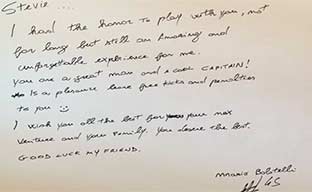 Stevie ...
I had the honor to play with you, not
for long but still an amazing and
unforgettable experience for me.
you are a great man and a cool CAPITAIN!
Is a pleasure leave free kicks and penalties
to you
I wish you all the best for your new
venture and your family. You deserve the best.
GOOD LUCK MY FRIEND.
Mario Balotelli
45